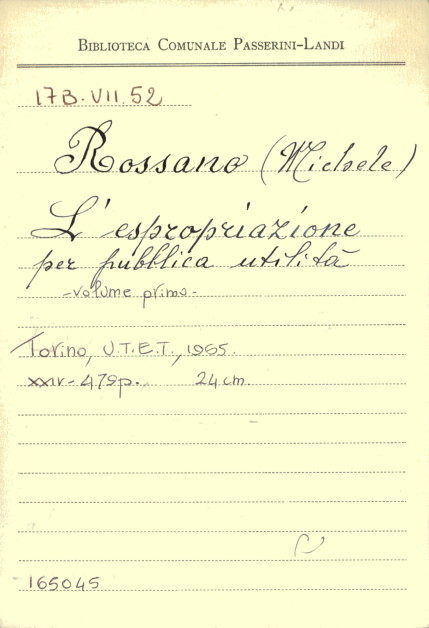 BIBLIOTECA COMUNALE PASSERINI-LANDI
17B.VII.52
Rossano (Michele)
L'espropriazione
per pubblica utilità
-volume primo-
Torino, U.T.E.T., 1965.
XXIV-479p. 24 cm.
165045